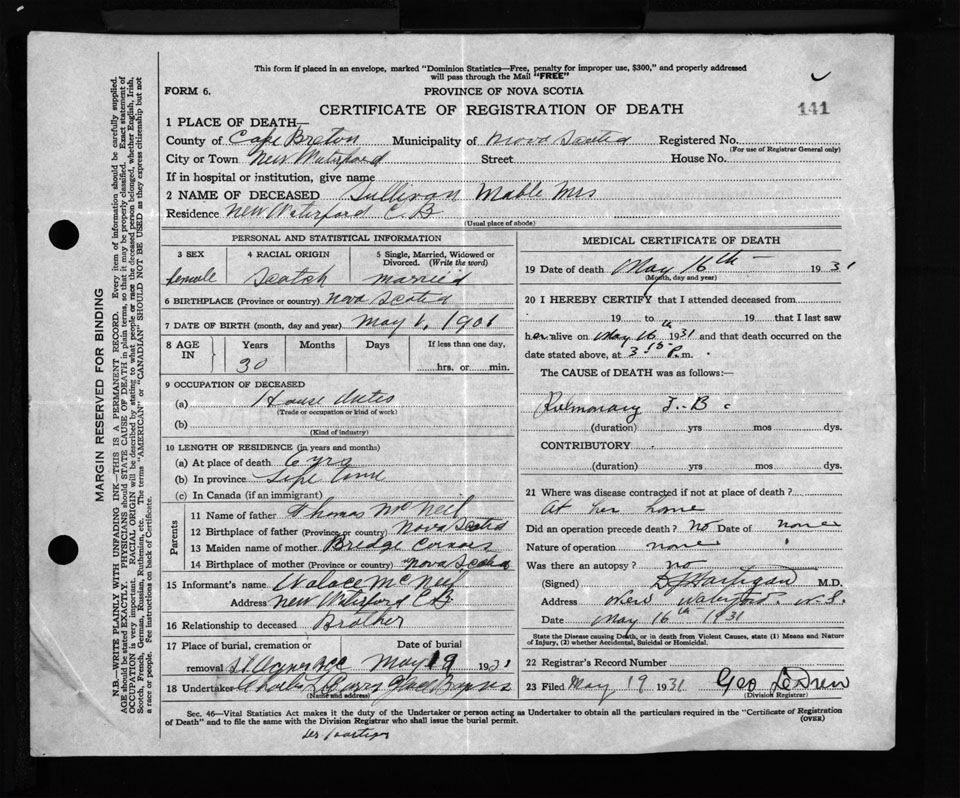 This form if placed in an envelope, marked "Dominion Statistics—Free, penalty for improper use, $300," and properly addressed
will pass through the Mail "FREE"
FORM 6.
PROVINCE OF NOVA SCOTIA
CERTIFICATE OF REGISTRATION OF DEATH
141
1 PLACE OF DEATH—
County of Cape Breton Municipality of Nova Scotia Registered No.
(For use of Registrar General only)
City or Town New Waterford Street House No.
If in hospital or institution, give name
2 NAME OF DECEASED Sullivan Mable Mrs
Residence New Waterford C.B
(Usual place of abode)
PERSONAL AND STATISTICAL INFORMATION
3 SEX 4 RACIAL ORIGIN 5 Single, Married, Widowed or
Divorced. (Write the word)
female Scotch married
6 BIRTHPLACE (Province or country) Nova Scotia
7 DATE OF BIRTH (month, day and year) May 1, 1901
8 AGE IN Years Months Days If less than one day,
30 hrs. or min.
9 OCCUPATION OF DECEASED
(a) House duties
(Trade or occupation or kind of work)
(b)
(Kind of industry)
10 LENGTH OF RESIDENCE (in years and months)
(a) At place of death 6 yrs
(b) In province Life time
(c) In Canada (if an immigrant)
Parents
11 Name of father Thomas McNeil
12 Birthplace of father (Province or country) Nova Scotia
13 Maiden name of mother Bridge Connors
14 Birthplace of mother (Province or country) Nova Scotia
15 Informant's name Walace McNeil
Address New Waterford C.B.
16 Relationship to deceased Brother
17 Place of burial, cremation or Date of burial
removal St. Agnes May 19 1931
18 Undertaker Barry Glace
(Name and address)
MEDICAL CERTIFICATE OF DEATH
19 Date of death May 16th 1931
(Month, day and year)
20 I HEREBY CERTIFY that I attended deceased from
19 to 19 that I last saw
her alive on May 16th 1931 and that death occurred on the
date stated above, at 3 15 P.m.
The CAUSE of DEATH was as follows:—
Pulmonary T.-B.
(duration) yrs mos dys.
CONTRIBUTORY
(duration) yrs mos dys.
21 Where was disease contracted if not at place of death?
At her home
Did an operation precede death? no Date of none
Nature of operation none
Was there an autopsy? no
(Signed) Hartigan M.D.
Address New Waterford N.S.
Date May 16th 1931
State the Disease causing Death, or in death from Violent Causes, state (1) Means and Nature
of Injury, (2) whether Accidental, Suicidal or Homicidal.
22 Registrar's Record Number
23 Filed May 19 1931 Geo
(Division Registrar)
Sec. 46—Vital Statistics Act makes it the duty of the Undertaker or person acting as Undertaker to obtain all the particulars required in the "Certificate of Registration
of Death" and to file the same with the Division Registrar who shall issue the burial permit.
(OVER)
MARGIN RESERVED FOR BINDING
N.B.—WRITE PLAINLY WITH UNFADING INK—THIS IS A PERMANENT RECORD. Every item of information should be carefully supplied.
AGE should be stated EXACTLY. PHYSICIANS should STATE CAUSE OF DEATH in plain terms, so that it may be properly classified. Exact statement of
OCCUPATION is very important. RACIAL ORIGIN will be described by stating to what people or race the deceased person belonged, whether English, Irish,
Scotch, French, German, Russian, Ruthenian, etc. The terms "AMERICAN" or "CANADIAN" SHOULD NOT BE USED as they express citizenship but not
a race or people. See instructions on back of Certificate.